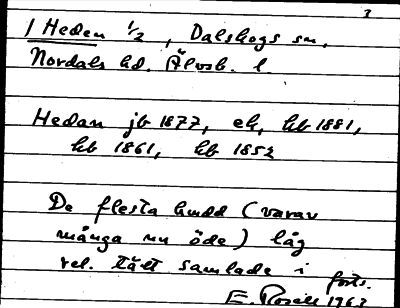 3
1 Heden 1/2, Dalskogs sn,
Nordals hd. Älvsb. l.
Hedan jb 1877, ek, hb 1881,
hb 1861, hb 1852
De flesta hmdd (varav
många nu öde) låg
rel. tätt samlade i forts.
E. Rosell 1963